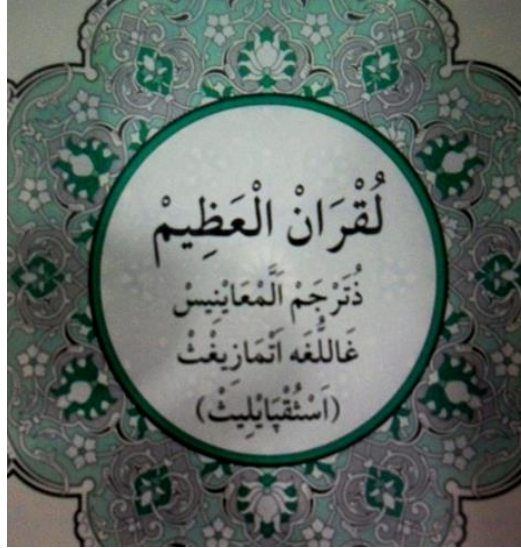 لُقْرَانْ الْعَظِيمْ
ذُتَرْجَمْ اَلْمَعَايْنِيسْ
غَاللُّغَه اَتْمَازِيغْثْ
(اَسْثُقْبَايْلِيثْ)